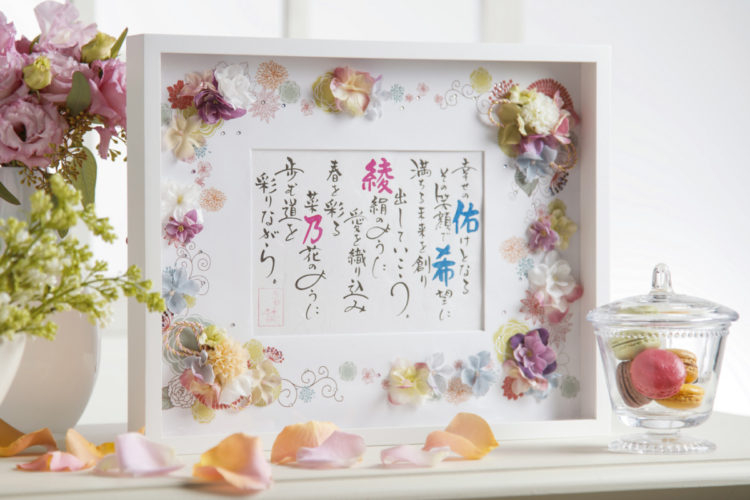 幸せの佑けとなる
その笑顔で希望に
満ちる未来を創り
出していこう。
綾絹のように
愛を織り込み
春を彩る
菜乃花のように
歩む道を
彩りながら。